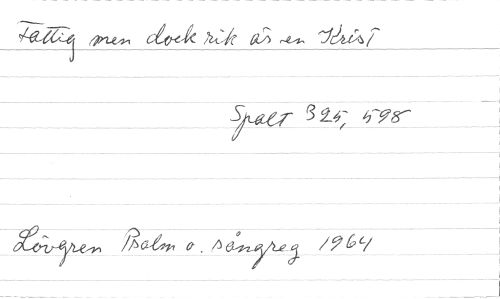 Fattig men dock rik är en Krist
Spalt 325, 598
Lövgren Psalm o. sångreg 1964